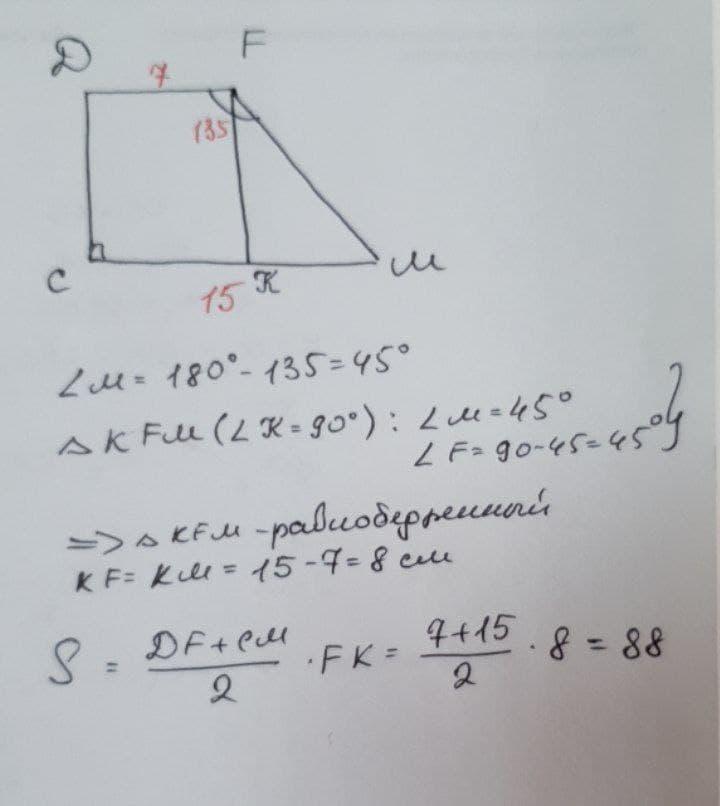 D
F
7
135
C
15
K
M
∠M = 180° - 135 = 45°
△KFM (∠K = 90°): ∠M = 45°
∠F = 90 - 45 = 45°
=> △KFM - равнобедренный
KF = KM = 15 - 7 = 8 см
S = (DF + CM)/2 · FK = (7 + 15)/2 · 8 = 88